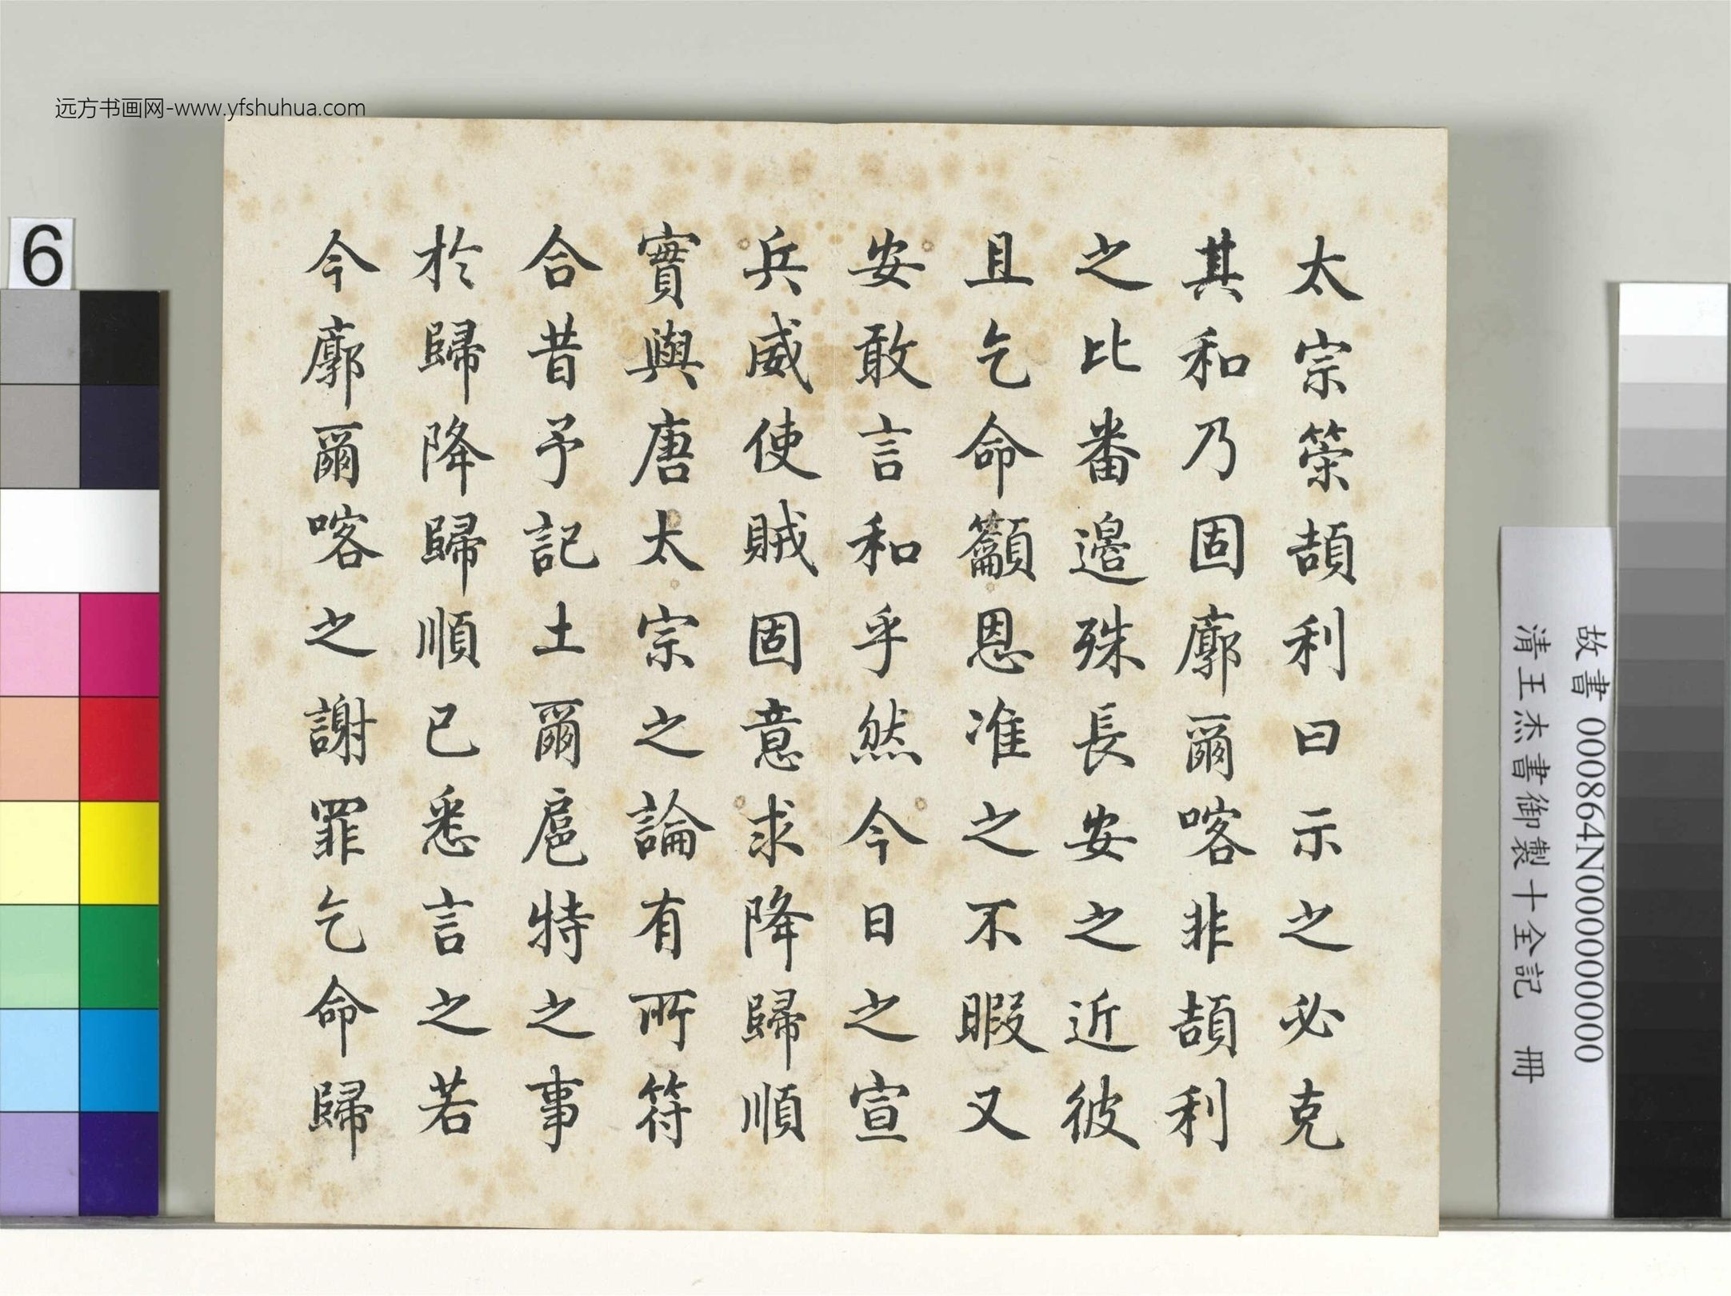 远方书画网-www.yfshuhua.com
6
太宗策頡利曰示之必克
其和乃固廓爾喀非頡利
之比番邊殊長安之近彼
且乞命籲恩准之不暇又
安敢言和乎然今日之宣
兵威使賊固意求降歸順
實與唐太宗之論有所符
合昔予記土爾扈特之事
於歸降歸順已悉言之若
今廓爾喀之謝罪乞命歸
故書 000864N000000000
清王杰書御製十全記 冊